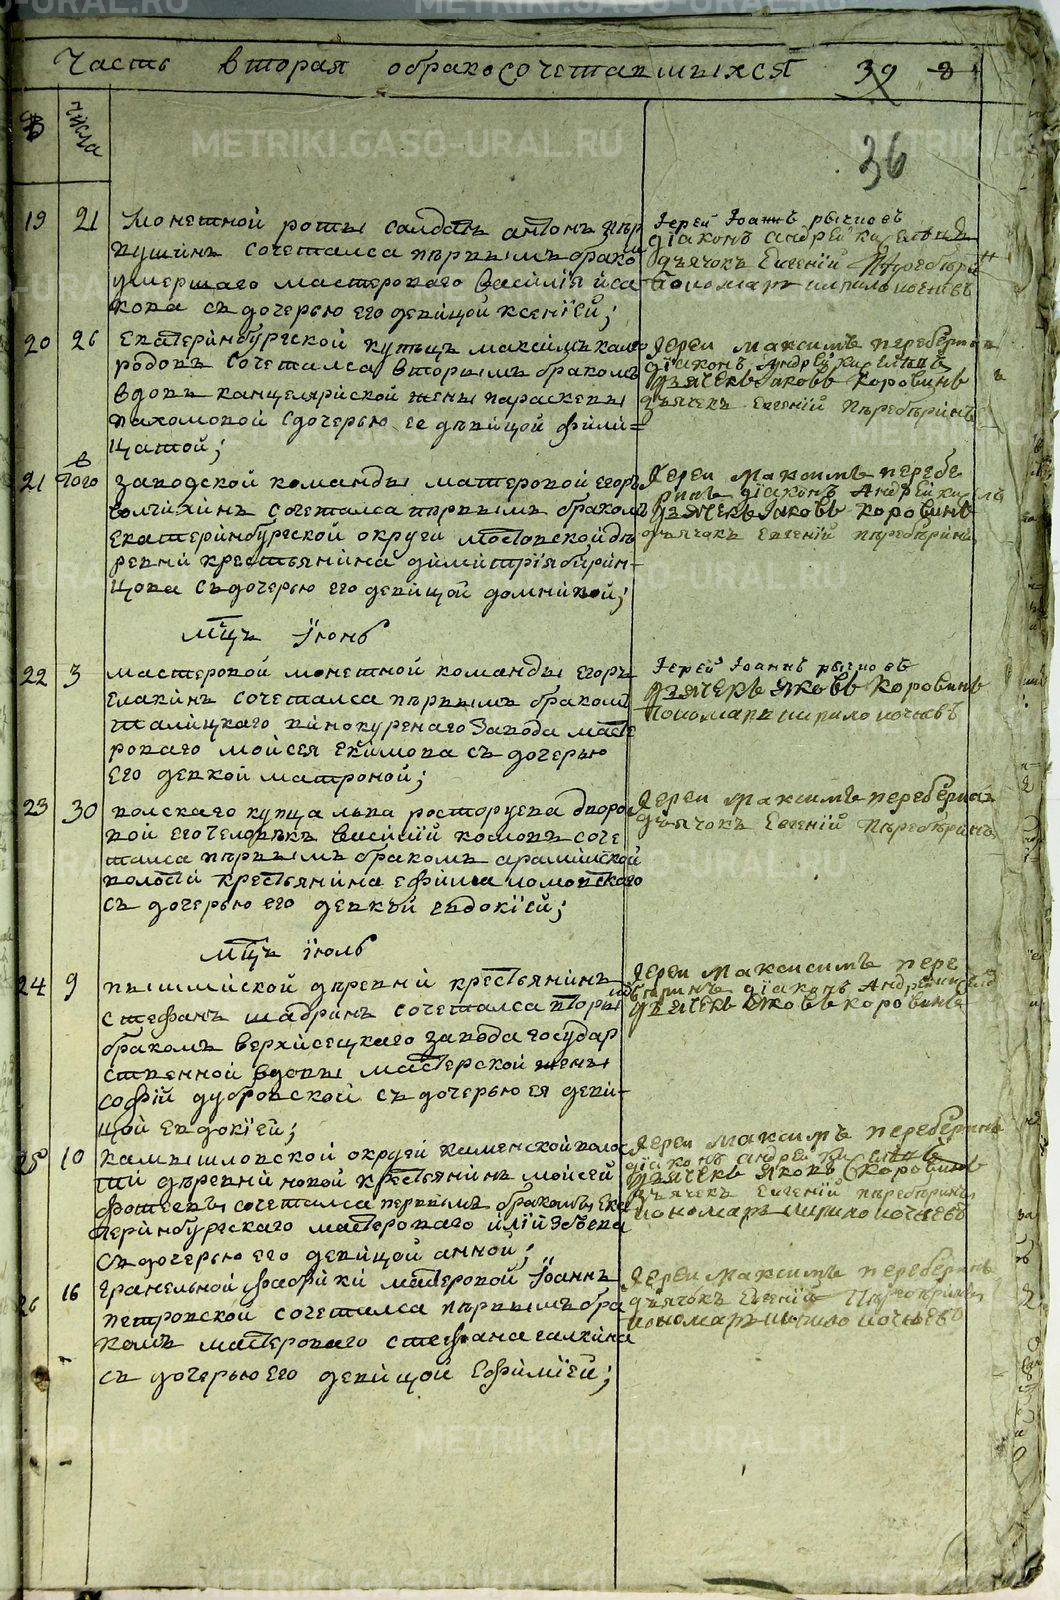 Часть вторая обракосочетавшыхся 39 8
36
№ числа
19 21 Монетной роты салдатъ антонъ
сочетался пѣрвымъ брако
умершаго мастероваго василія иса
кова съ дочерью его девицой ксеніей;
Іерей Іоаннъ
діаконъ андрей
дьячокъ Евгеній
пономарь кирило
20 26 Екатерінбургской купѣцъ максимъ
сочетался вторымъ бракомъ
вдовы канцелярійской жены параскевы
пахомовой сдочерью ее дѣвицой фили=
цатой;
Іереи Максимъ переберин
діаконъ Андрей
дьячекъ Іаковъ коровинъ
дьячекъ Евгеній Пѣребѣринъ
21 того заводской команды мастеровой егоръ
волчихинъ сочетался пѣрвымъ браком
Екатерінбургской округи мостовской дѣ
ревни крестьянина димитрія
съ дочерью его девицой домникой;
Іереи Максимъ перебе
ринъ діаконъ Андрей
дьячекъ Іаковъ коровинъ
дьячокъ Евгеній пѣребѣрин
мцъ Іюнь
22 3 мастеровой монетной команды Егоръ
Елакинъ сочетался пѣрвымъ браком
талицкаго винокуренаго завода масте
роваго мойсея Екимова съ дочерью
его девкой матроной;
Іерей Іоаннъ
дьячекъ Яковъ коровинъ
пономарь кирило
23 30 купца льва росторуева дворо
вой его человѣкъ василий козловъ соче
тался пѣрвымъ бракомъ арамильской
волости крестьянина ефима
съ дочерью его девкой евдокіей;
Іереи Максимъ переберин
дьячокъ Евгеній Пѣребѣринъ
мцъ Іюль
24 9 пышминской дѣревни крестьянинъ
стефанъ шадринъ сочетался вторы
бракомъ верхисецкаго завода государ
ственной вдовы мастерской жены
софіи дубровской съ дочерью ея деви-
цой евдокіей;
Іереи Максимъ пере
беринъ діаконъ Андрей
дьячекъ Яковъ коровинъ
25 10 камышловской округи каменской волос
ти дѣревни новой крестьянинъ мойсей
фотеевъ сочетался первымъ бракомъ ека
терінбургскаго мастероваго иліи
съ дочерью его девицой анной;
Іереи Максимъ переберинъ
діаконъ андрей
дьячекъ Яковъ коровинъ
дьячекъ Евгеній пѣребѣринъ
пономарь кирило
26 16 гранельной фабрики мастеровой Іоаннъ
петровской сочетался пѣрвымъ бра
комъ мастероваго стефана галкина
съ дочерью его девицой Ефиміей;
Іереи Максимъ переберинъ
дьячокъ Евгеній Пѣребѣринъ
пономарь кирило
METRIKI.GASO-URAL.RU